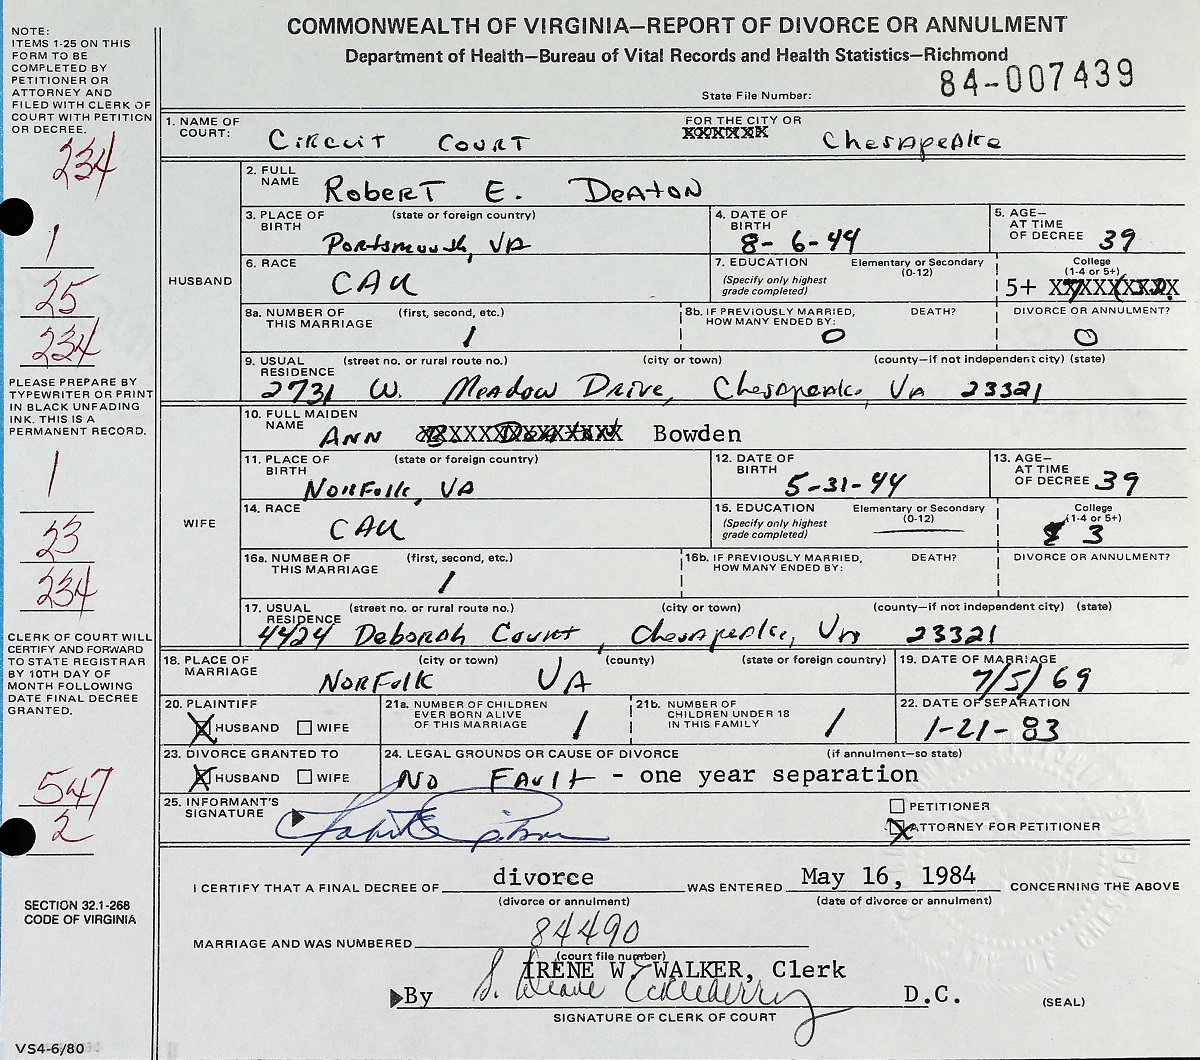 COMMONWEALTH OF VIRGINIA—REPORT OF DIVORCE OR ANNULMENT
Department of Health—Bureau of Vital Records and Health Statistics—Richmond
State File Number: 84-007439
NOTE:
ITEMS 1-25 ON THIS
FORM TO BE
COMPLETED BY
PETITIONER OR
ATTORNEY AND
FILED WITH CLERK OF
COURT WITH PETITION
OR DECREE.
234
1
25
234
PLEASE PREPARE BY
TYPEWRITER OR PRINT
IN BLACK UNFADING
INK. THIS IS A
PERMANENT RECORD.
1
23
234
CLERK OF COURT WILL
CERTIFY AND FORWARD
TO STATE REGISTRAR
BY 10TH DAY OF
MONTH FOLLOWING
DATE FINAL DECREE
GRANTED.
547
2
SECTION 32.1-268
CODE OF VIRGINIA
VS4-6/80
1. NAME OF COURT: Circuit Court FOR THE CITY OR XXXXXXX Chesapeake
HUSBAND
2. FULL NAME Robert E. Deaton
3. PLACE OF BIRTH (state or foreign country) Portsmouth, VA
4. DATE OF BIRTH 8-6-44
5. AGE— AT TIME OF DECREE 39
6. RACE CAU
7. EDUCATION (Specify only highest grade completed) Elementary or Secondary (0-12) College (1-4 or 5+) 5+ XXXXXXXXXX
8a. NUMBER OF THIS MARRIAGE (first, second, etc.) 1
8b. IF PREVIOUSLY MARRIED, HOW MANY ENDED BY: DEATH? 0 DIVORCE OR ANNULMENT? 0
9. USUAL RESIDENCE (street no. or rural route no.) (city or town) (county—if not independent city) (state)
2731 W. Meadow Drive, Chesapeake, VA 23321
WIFE
10. FULL MAIDEN NAME Ann XXXXXXXXXXXXXXX Bowden
11. PLACE OF BIRTH (state or foreign country) Norfolk, VA
12. DATE OF BIRTH 5-31-44
13. AGE— AT TIME OF DECREE 39
14. RACE CAU
15. EDUCATION (Specify only highest grade completed) Elementary or Secondary (0-12) College (1-4 or 5+) 3
16a. NUMBER OF THIS MARRIAGE (first, second, etc.) 1
16b. IF PREVIOUSLY MARRIED, HOW MANY ENDED BY: DEATH? DIVORCE OR ANNULMENT?
17. USUAL RESIDENCE (street no. or rural route no.) (city or town) (county—if not independent city) (state)
4424 Deborah Court, Chesapeake, VA 23321
18. PLACE OF MARRIAGE (city or town) (county) (state or foreign country) Norfolk VA
19. DATE OF MARRIAGE 7/5/69
20. PLAINTIFF X HUSBAND WIFE
21a. NUMBER OF CHILDREN EVER BORN ALIVE OF THIS MARRIAGE 1
21b. NUMBER OF CHILDREN UNDER 18 IN THIS FAMILY 1
22. DATE OF SEPARATION 1-21-83
23. DIVORCE GRANTED TO X HUSBAND WIFE
24. LEGAL GROUNDS OR CAUSE OF DIVORCE (if annulment—so state)
No Fault - one year separation
25. INFORMANT'S SIGNATURE
PETITIONER
X ATTORNEY FOR PETITIONER
I CERTIFY THAT A FINAL DECREE OF divorce WAS ENTERED May 16, 1984 CONCERNING THE ABOVE
(divorce or annulment) (date of divorce or annulment)
MARRIAGE AND WAS NUMBERED 84490
(court file number)
IRENE W. WALKER, Clerk
By D.C. (SEAL)
SIGNATURE OF CLERK OF COURT